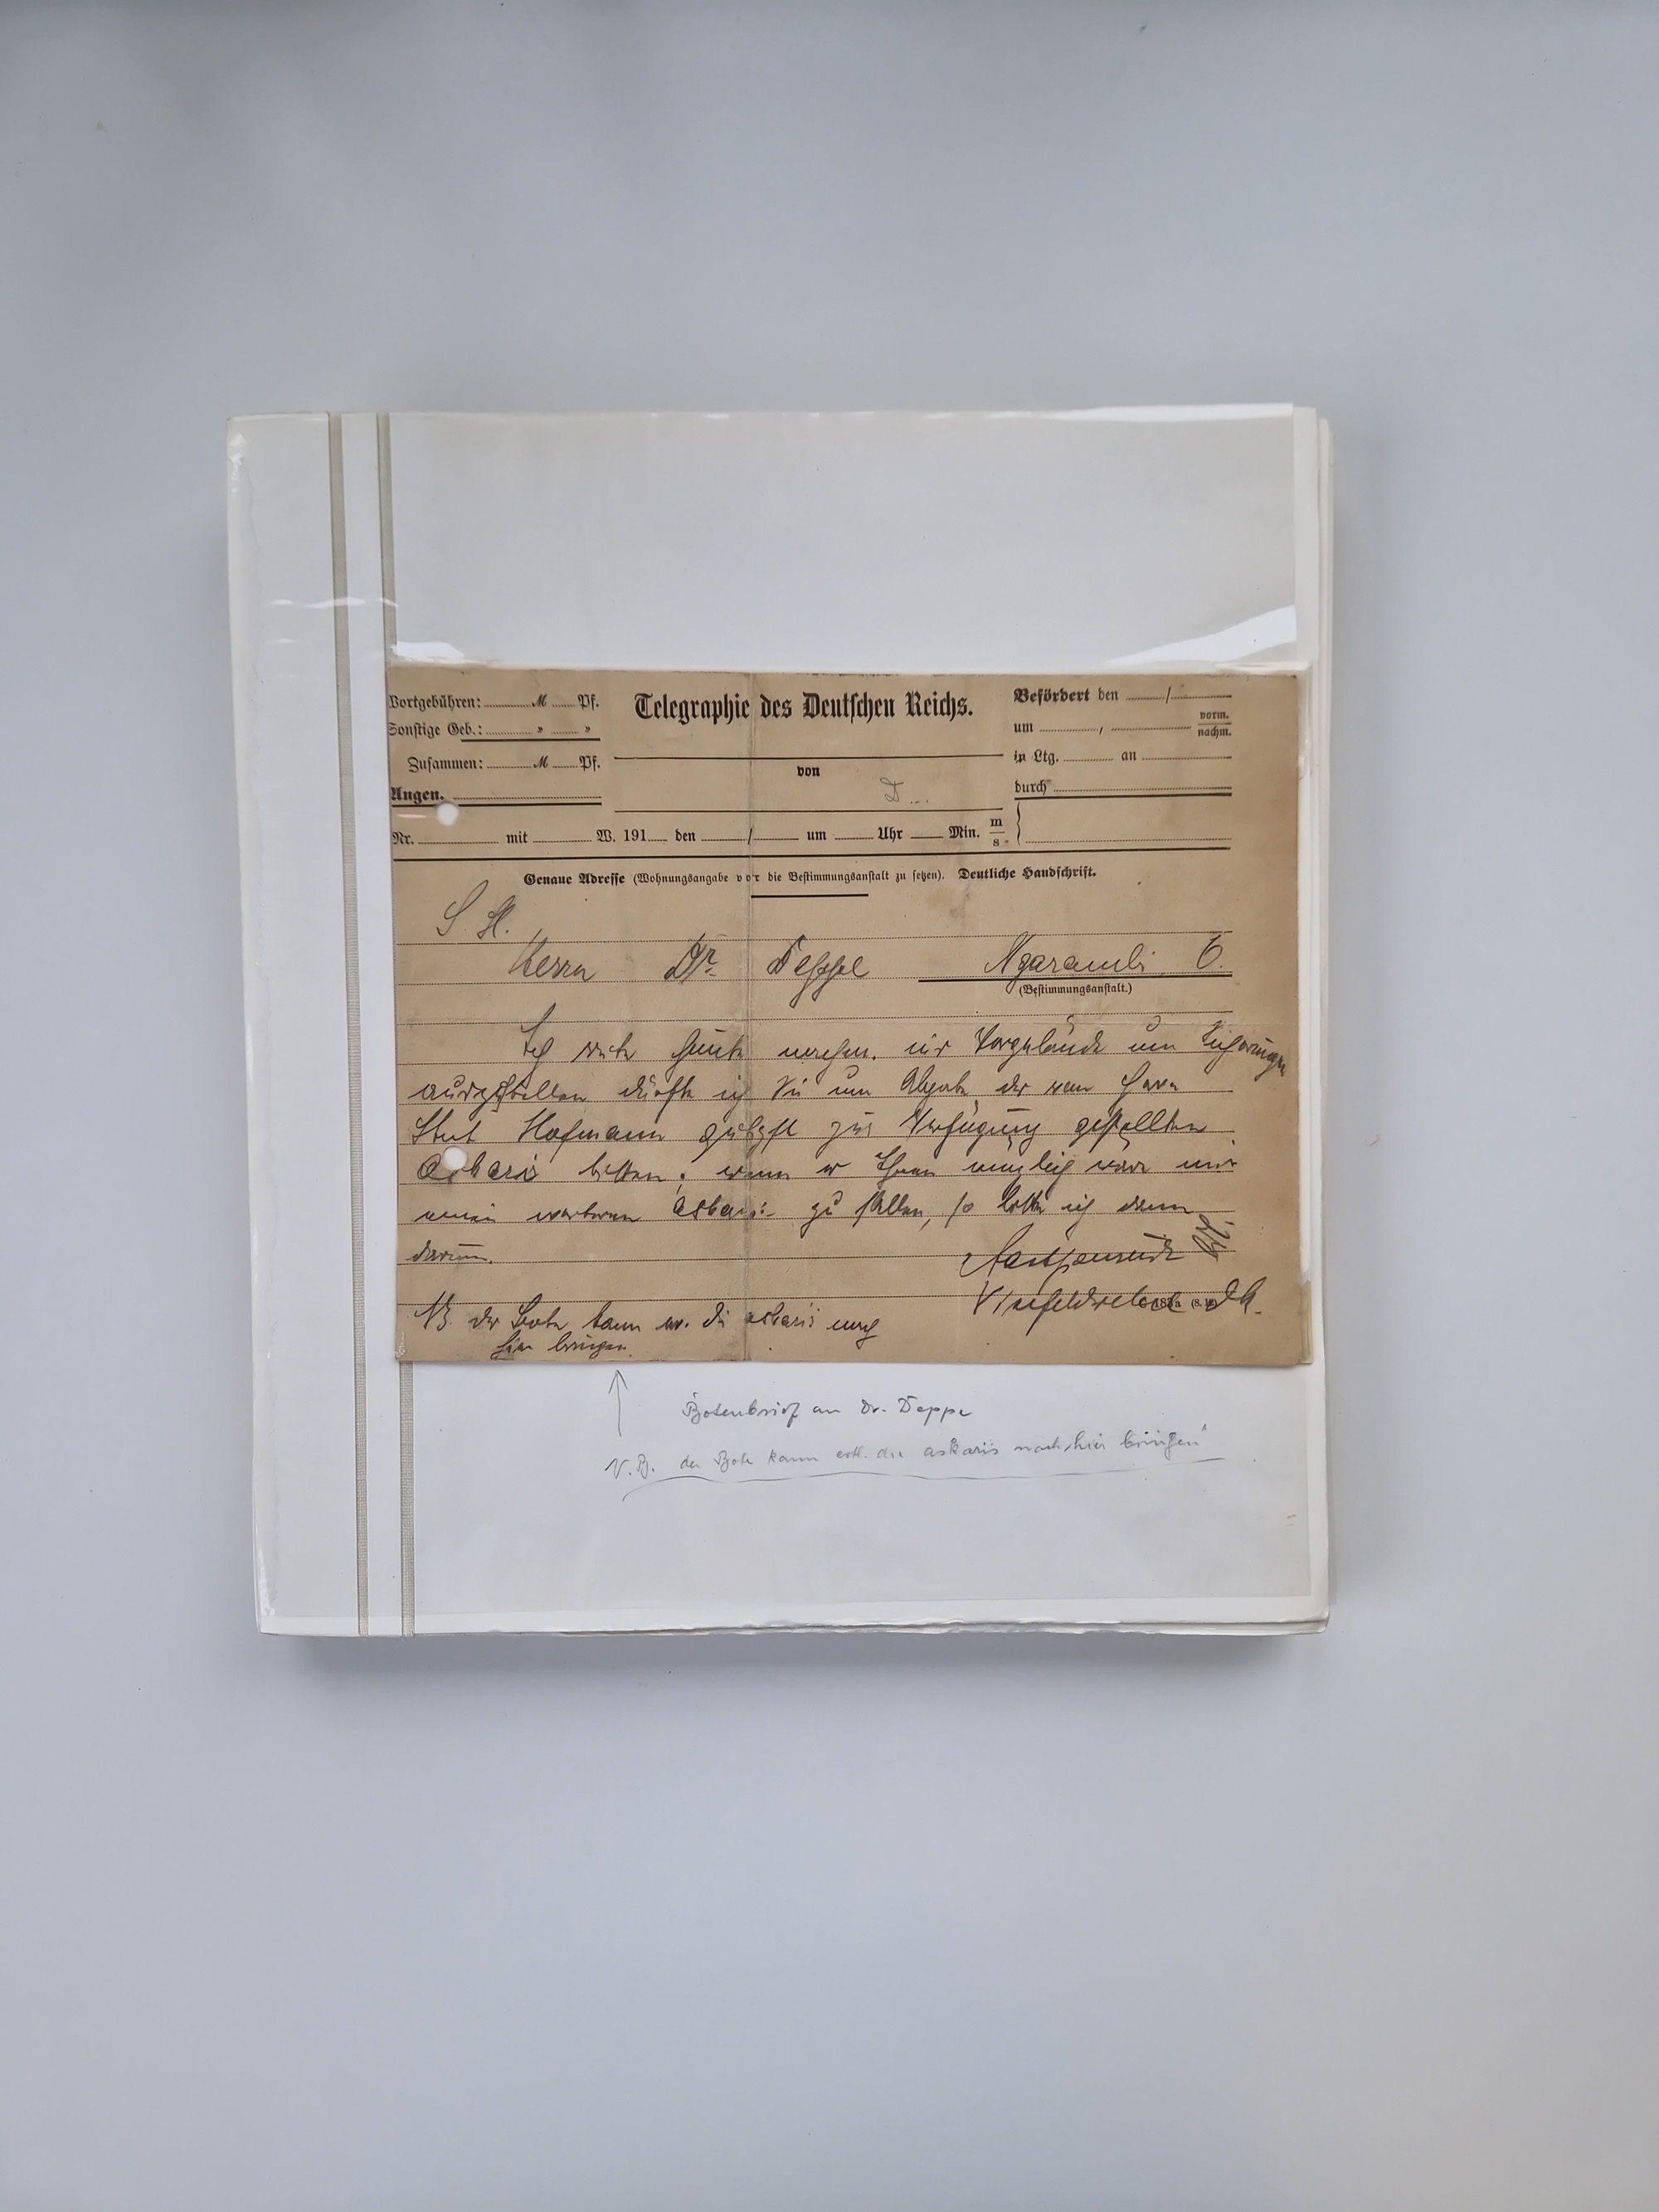 Wortgebühren: M Pf.
Sonstige Geb.: " "
Zusammen: M Pf.
Angen.
Telegraphie des Deutschen Reichs.
von
D...
Befördert den /
um , vorm. nachm.
in Ltg. an
durch
Nr. mit W. 191 den / um Uhr Min. m s
Genaue Adresse (Wohnungsangabe vor die Bestimmungsanstalt zu setzen). Deutliche Handschrift.
S. H.
Herrn Dr. Deppe Ngarambi
(Bestimmungsanstalt.)
Ich heute Vorgelände um
dürfte ich Sie um Abgabe der von Herrn
Hofmann zur Verfügung gestellten
Askaris bitten; wenn es Ihnen möglich wäre mir
Askaris zu stellen, so bitte ich
darum.
Vizefeldwebel
NB. der Bote kann ev. die askaris nach
hier bringen.
Botenbrief an Dr. Deppe
N.B. der Bote kann evtl. die askaris nach hier bringen"